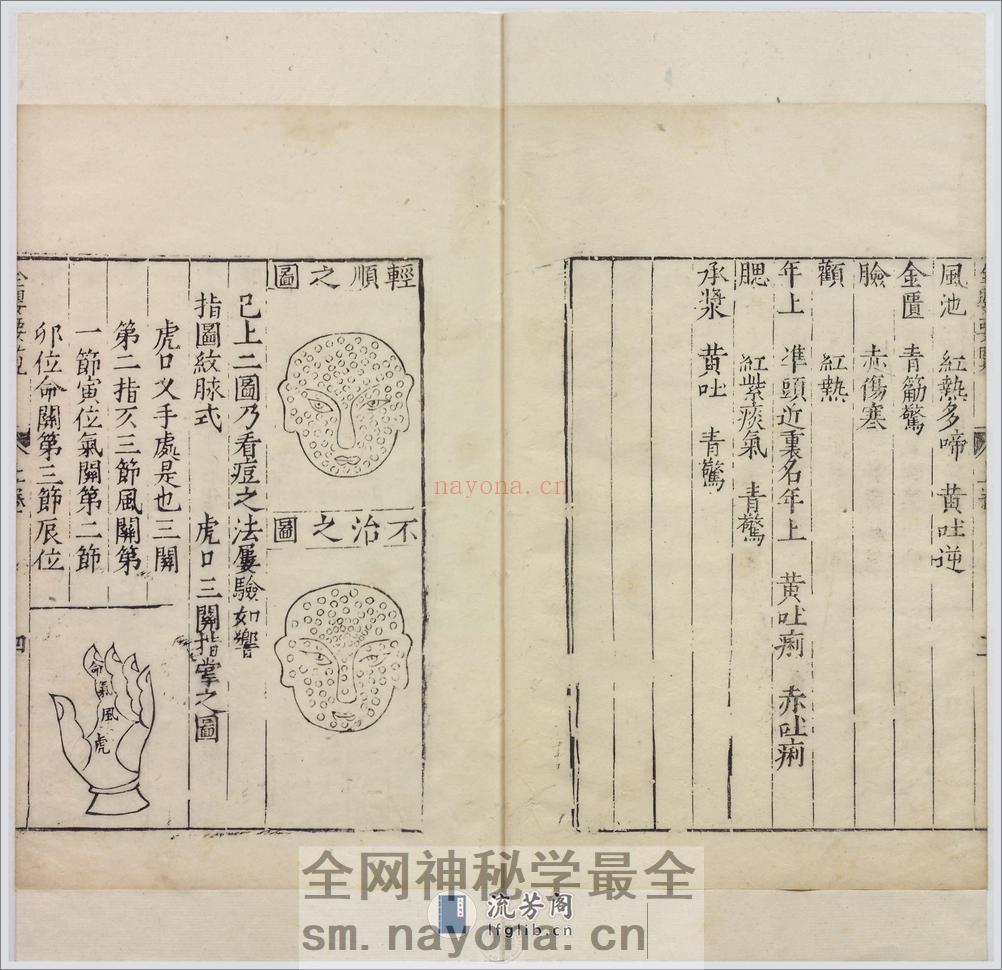 風池　紅熱多啼　黃吐逆
金匱　青筋驚
臉　赤傷寒
顴　紅熱
年上　準頭近裏名年上　黃吐痢　赤吐痢
腮　紅紫痰氣　青驚
承漿　黃吐　青驚
輕順之圖
不治之圖
已上二圖乃看痘之法屢驗如響
指圖紋脉式　虎口三關指掌之圖
虎口叉手處是也三關
第二指爻三節風關第
一節寅位氣關第二節
卯位命關第三節辰位
命
氣
風
虎
四
nayona.cn
全网神秘学最全
流芳阁
lfglib.cn
sm.nayona.cn